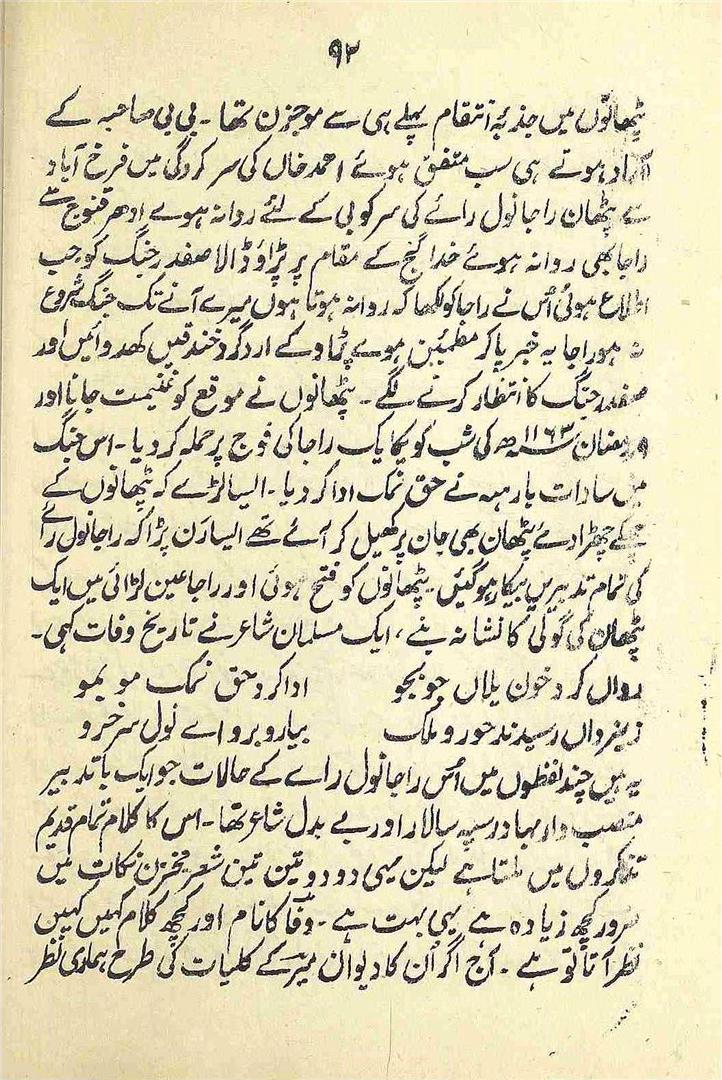 ۹۲
پٹھانوں میں جذبۂ انتقام پہلے ہی سے موجزن تھا ۔ بی بی صاحبہ کے
آزاد ہوتے ہی سب متفق ہوئے احمد خاں کی سرکردگی میں فرخ آباد
سے پٹھان راجا نول رائے کی سرکوبی کے لئے روانہ ہوے ادھر قنوج سے
راجا بھی روانہ ہوئے خدا گنج کے مقام پر پڑاؤ ڈالا صفدر جنگ کو جب
اطلاع ہوئی اُس نے راجا کو لکھا کہ روانہ ہوتا ہوں میرے آنے تک جنگ شروع
نہ ہو راجا یہ خبر پا کر مطمئین ہوے پڑاو کے ارد گرد خندقیں کھدوائیں اور
صفدر جنگ کا انتظار کرنے لگے ۔ پٹھانوں نے موقع کو غنیمت جانا اور
رمضان ۱۱۶۳ھ کی شب کو یکایک راجا کی فوج پر حملہ کر دیا ۔ اس جنگ
میں سادات بارہہ نے حق نمک ادا کر دیا ۔ ایسا لڑے کہ پٹھانوں کے
چھکے چھڑا دئے پٹھان بھی جان پر کھیل کر آئے تھے ایسا رَن پڑا کہ راجا نول رائے
کی تمام تدبیریں بیکار ہو گئیں ۔ پٹھانوں کو فتح ہوئی اور راجا عین لڑائی میں ایک
پٹھان کی گولی کا نشانہ بنے ، ایک مسلمان شاعر نے تاریخ وفات کہی ۔
رواں کرد خون یلاں جو بجو ادا کرد حق نمک مو بمو
زیزداں رسیدند حور و ملک بیا روبرو اے نول سرخرو
یہ ہیں چند لفظوں میں اُس راجا نول رائے کے حالات جو ایک باتدبیر
منصب دار بہادر سپہ سالار اور بے بدل شاعر تھا ۔ اس کا کلام تمام قدیم
تذکروں میں ملتا ہے لیکن یہی دو دو تین تین شعر مخزن نکات میں
ضرور کچھ زیادہ ہے یہی بہت ہے ۔ وفاؔ کا نام اور کچھ کلام کہیں کہیں
نظر آتا تو ہے ۔ آج اگر اُن کا دیوان میرؔ کے کلیات کی طرح ہماری نظر